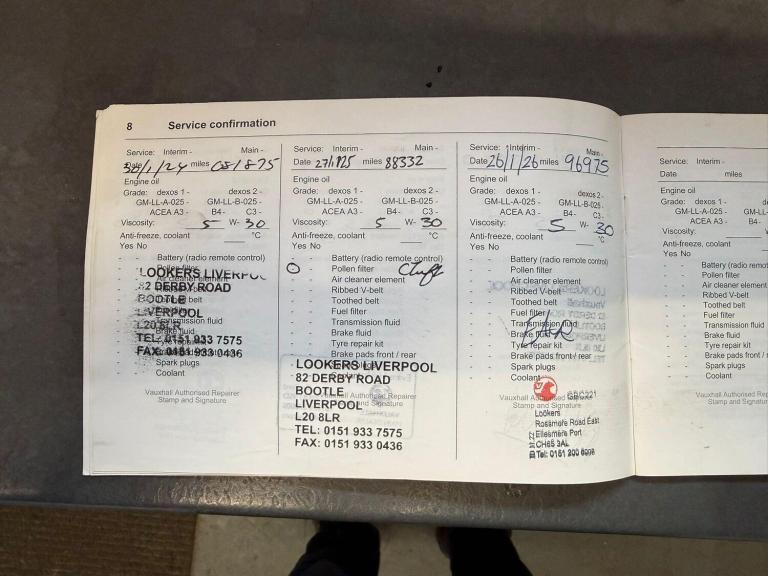 8 Service confirmation
Service: Interim - Main -
Date 30/1/24 miles 081875
Engine oil
Grade: dexos 1 - dexos 2 -
GM-LL-A-025 - GM-LL-B-025 -
ACEA A3 - B4- C3 -
Viscosity: 5 W- 30
Anti-freeze, coolant °C
Yes No
- - Battery (radio remote control)
LOOKERS LIVERPOOL
82 DERBY ROAD
BOOTLE
LIVERPOOL
L20 8LR
TEL: 0151 933 7575
FAX: 0151 933 0436
- - Spark plugs
- - Coolant
Vauxhall Authorised Repairer
Stamp and Signature
Service: Interim - Main -
Date 27/1/25 miles 88332
Engine oil
Grade: dexos 1 - dexos 2 -
GM-LL-A-025 - GM-LL-B-025 -
ACEA A3 - B4- C3 -
Viscosity: 5 W- 30
Anti-freeze, coolant °C
Yes No
- - Battery (radio remote control)
O - Pollen filter
- - Air cleaner element
- - Ribbed V-belt
- - Toothed belt
- - Fuel filter
- - Transmission fluid
- - Brake fluid
- - Tyre repair kit
- - Brake pads front / rear
LOOKERS LIVERPOOL
82 DERBY ROAD
BOOTLE
LIVERPOOL
L20 8LR
TEL: 0151 933 7575
FAX: 0151 933 0436
Service: Interim - Main -
Date 26/1/26 miles 96975
Engine oil
Grade: dexos 1 - dexos 2 -
GM-LL-A-025 - GM-LL-B-025 -
ACEA A3 - B4- C3 -
Viscosity: 5 W- 30
Anti-freeze, coolant °C
Yes No
- - Battery (radio remote control)
- - Pollen filter
- - Air cleaner element
- - Ribbed V-belt
- - Toothed belt
- - Fuel filter
- - Transmission fluid
- - Brake fluid
- - Tyre repair kit
- - Brake pads front / rear
- - Spark plugs
- - Coolant
Vauxhall Authorised
Stamp and Signature
Lookers
Rossmore Road East
Ellesmere Port
CH65 3AL
Tel: 0151 200 6998
Service: Interim -
Date miles
Engine oil
Grade: dexos 1 - de
GM-LL-A-025 - GM-LL
ACEA A3 - B4-
Viscosity: W-
Anti-freeze, coolant
Yes No
- - Battery (radio remot
- - Pollen filter
- - Air cleaner element
- - Ribbed V-belt
- - Toothed belt
- - Fuel filter
- - Transmission fluid
- - Brake fluid
- - Tyre repair kit
- - Brake pads front / re
- - Spark plugs
- - Coolant
Vauxhall Authorised Rep
Stamp and Signatur